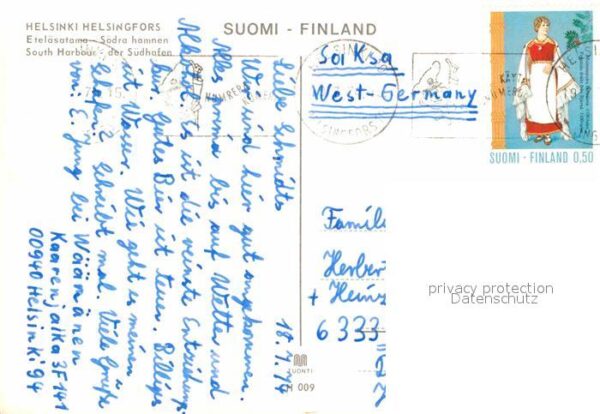 HELSINKI HELSINGFORS
Eteläsatama - Södra hamnen
South Harbour - der Südhafen
SUOMI - FINLAND
18.7.74
Liebe Schmidts
Wir sind hier gut angekommen.
Alles prima bis auf Wetter und
Alkohol. Es ist die reinste Entziehungs
kur. Gutes Bier ist teuer. Billiges
mit Wasser. Wie geht es meinen
Schreibt mal. Viele Grüße
von: E. Jung bei Wäänänen
Kaarenjalka 3F141
00940 Helsinki 94
Saksa
West-Germany
Famil
Herber
+ Heinz
6333
SUOMI - FINLAND 0,50
privacy protection
Datenschutz
TUONTI
009